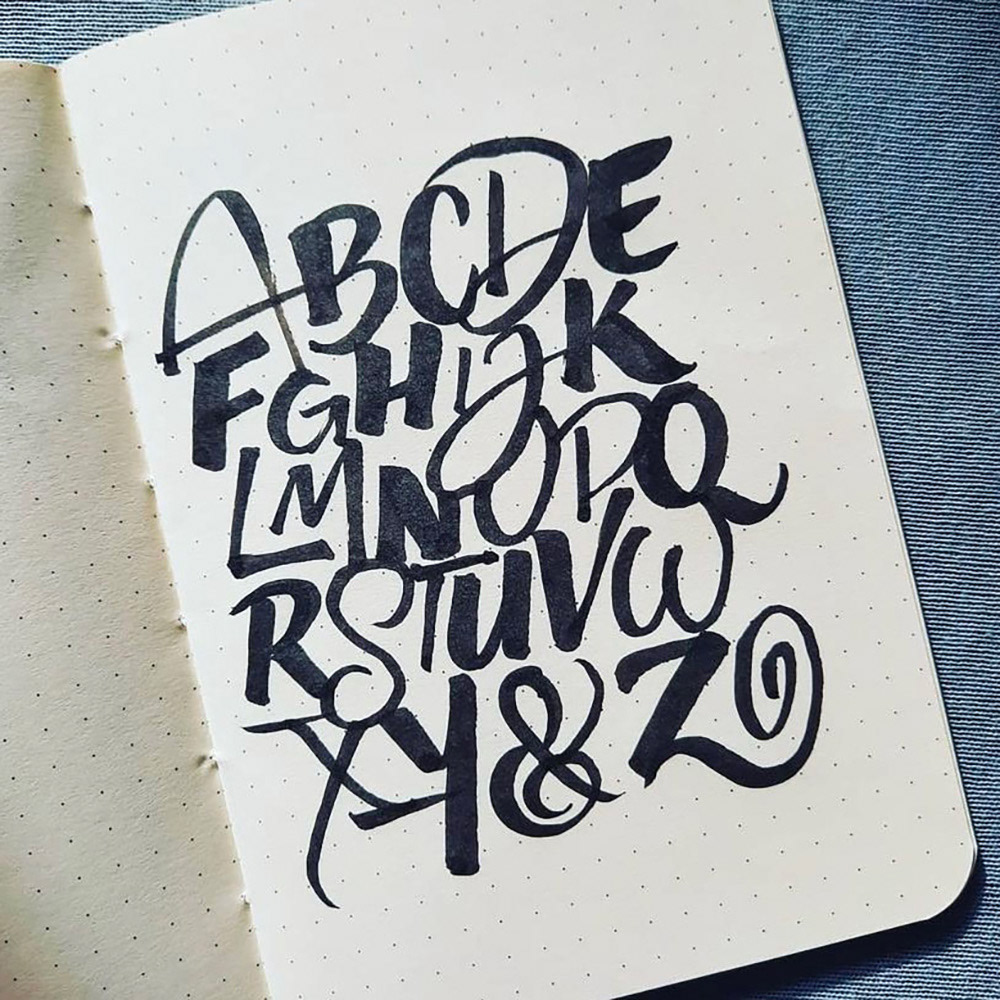 ABCDE
FGHIJK
LMNOPQ
RSTUVW
XY&Z